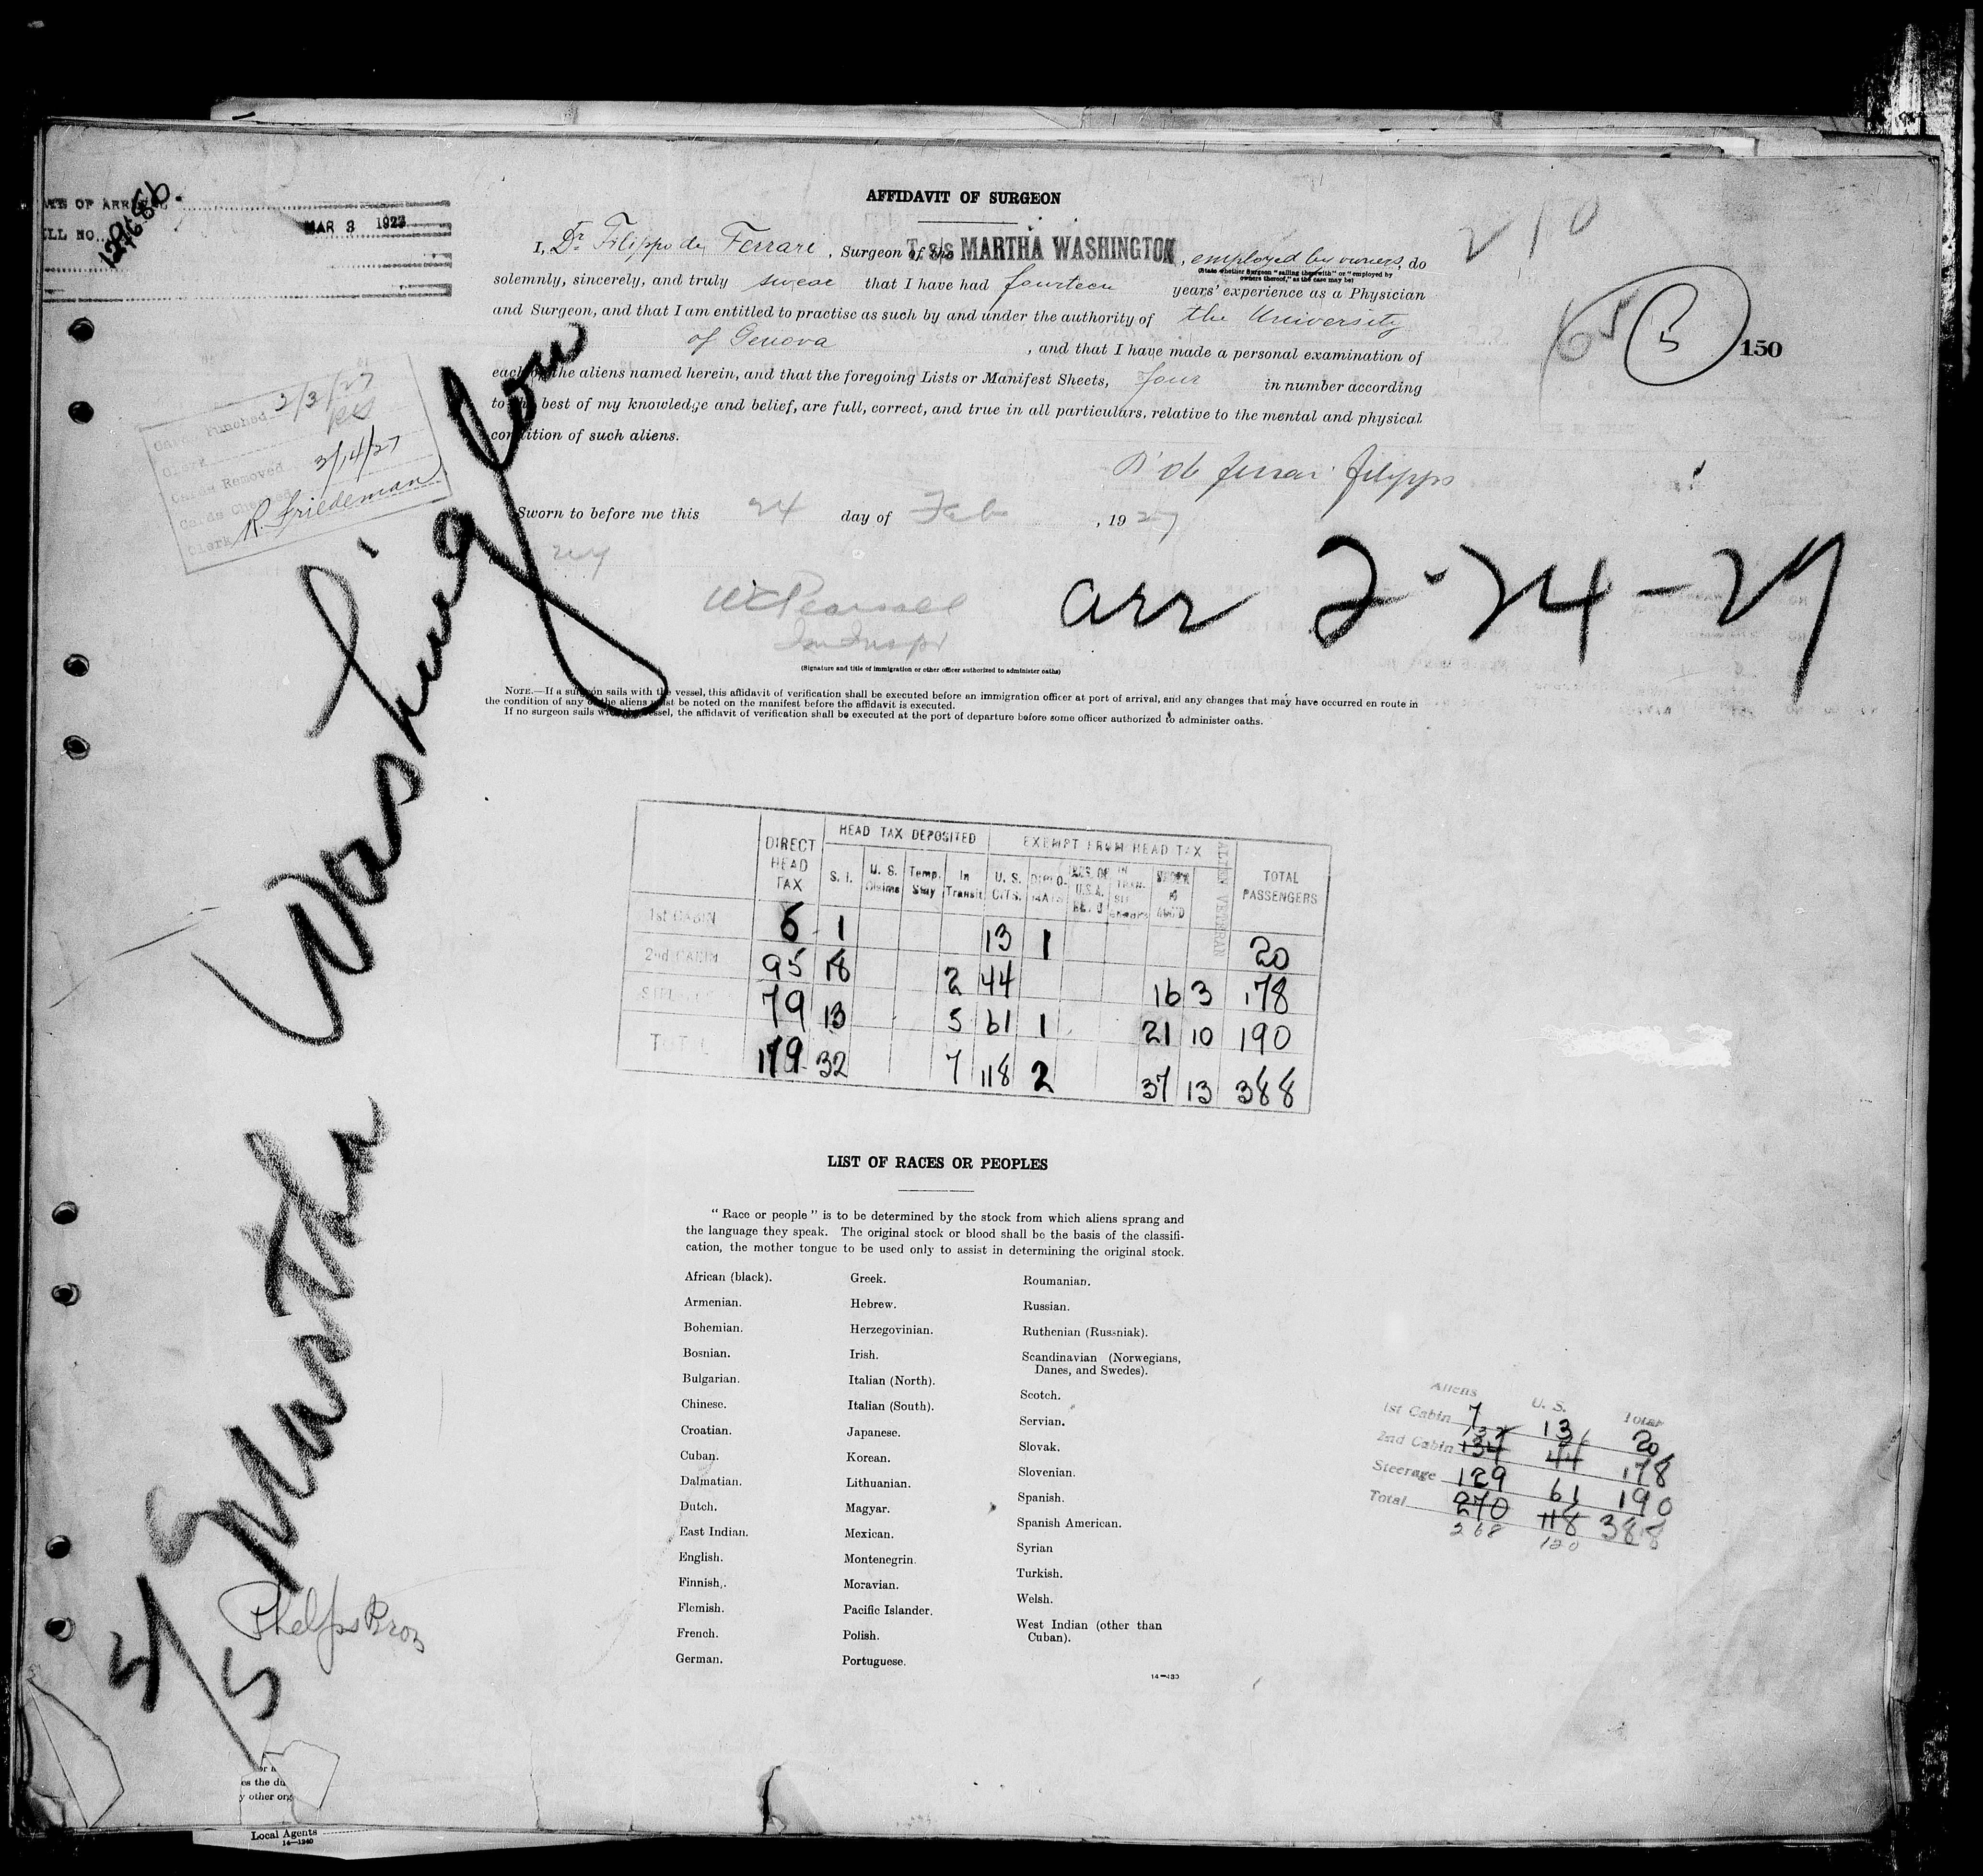 MAR 3 1927
129686.
AFFIDAVIT OF SURGEON
I, Dr Filippo de Ferrari, Surgeon of the T. s/s MARTHA WASHINGTON, employed by owners, do
(State whether Surgeon "sailing therewith" or "employed by
owners thereof," as the case may be)
solemnly, sincerely, and truly swear that I have had fourteen years' experience as a Physician
and Surgeon, and that I am entitled to practise as such by and under the authority of the University
of Genova, and that I have made a personal examination of
each of the aliens named herein, and that the foregoing Lists or Manifest Sheets, four in number according
to the best of my knowledge and belief, are full, correct, and true in all particulars, relative to the mental and physical
condition of such aliens.
210
5
150
Cards Punched 3/3/27
Clerk
Cards Removed 3/14/27
Cards Checked
Clerk R. Friedeman
Sworn to before me this 24 day of Feb, 1927
NY
WCPearsall
Im Inspr
(Signature and title of immigration or other officer authorized to administer oaths)
arr 2-24-27
NOTE.—If a surgeon sails with the vessel, this affidavit of verification shall be executed before an immigration officer at port of arrival, and any changes that may have occurred en route in
the condition of any of the aliens must be noted on the manifest before the affidavit is executed.
If no surgeon sails with the vessel, the affidavit of verification shall be executed at the port of departure before some officer authorized to administer oaths.
S/S Martha Washington
Phelps Bros
DIRECT HEAD TAX HEAD TAX DEPOSITED EXEMPT FROM HEAD TAX ALIEN VETERAN TOTAL PASSENGERS
S. I. U. S. Claims Temp. Stay In Transit U. S. CITS. DIPLO-MATS
1st CABIN 6 1 13 1 20
2nd CABIN 95 18 2 44 16 3 178
79 13 5 61 1 21 10 190
TOTAL 179 32 7 118 2 37 13 388
LIST OF RACES OR PEOPLES
"Race or people" is to be determined by the stock from which aliens sprang and
the language they speak. The original stock or blood shall be the basis of the classifi-
cation, the mother tongue to be used only to assist in determining the original stock.
African (black).
Armenian.
Bohemian.
Bosnian.
Bulgarian.
Chinese.
Croatian.
Cuban.
Dalmatian.
Dutch.
East Indian.
English.
Finnish.
Flemish.
French.
German.
Greek.
Hebrew.
Herzegovinian.
Irish.
Italian (North).
Italian (South).
Japanese.
Korean.
Lithuanian.
Magyar.
Mexican.
Montenegrin.
Moravian.
Pacific Islander.
Polish.
Portuguese.
Roumanian.
Russian.
Ruthenian (Russniak).
Scandinavian (Norwegians,
Danes, and Swedes).
Scotch.
Servian.
Slovak.
Slovenian.
Spanish.
Spanish American.
Syrian
Turkish.
Welsh.
West Indian (other than
Cuban).
14—430
Aliens U. S. Total
1st Cabin 7 13 20
2nd Cabin 134 44 178
Steerage 129 61 190
Total 270 118 388
268 120
es the du
y other org
Local Agents
14—1240